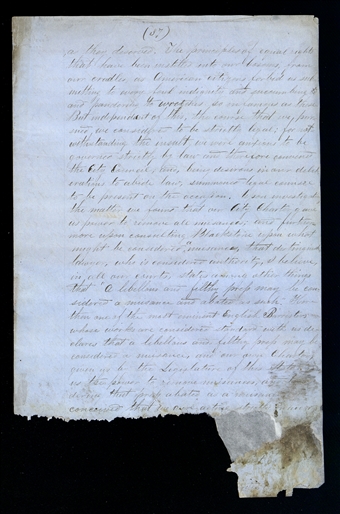 (5.)
as they deserted. The principles of equal rights
that have been instilled into our bosoms, from
our cradles, as American citizens forbid us sub
mitting to every foul indignity and succumbing to
and pandering to wretches, so
But independent of this, the course that we pur
sued, we considered to be strictly legal; for not
withstanding the insult, we were anxious to be
governed strictly by law and therefore convened
the City Council; and being desirous in our delib
erations to abide law, summoned legal counsel
to be present on the occasion. Upon investigating
the matter, we found that our City Charter gave
us power to remove all nuisances; and further
more upon consulting Blackstone upon what
might be considered nuisances, that distinguished
lawyer, who is considered authority, I believe,
in all our courts, states among other things
that "A libellous and filthy press may be con
sidered a nuisance and abated as such." Here
then one of the most eminent English Barristers
whose works are considered standard with us de
clares that a libellous and filthy press may be
considered a nuisance; and our own Charter
given us by the Legislature of this State
us the power to remove nuisances; and
that press abated as a nuisance
conceived that we